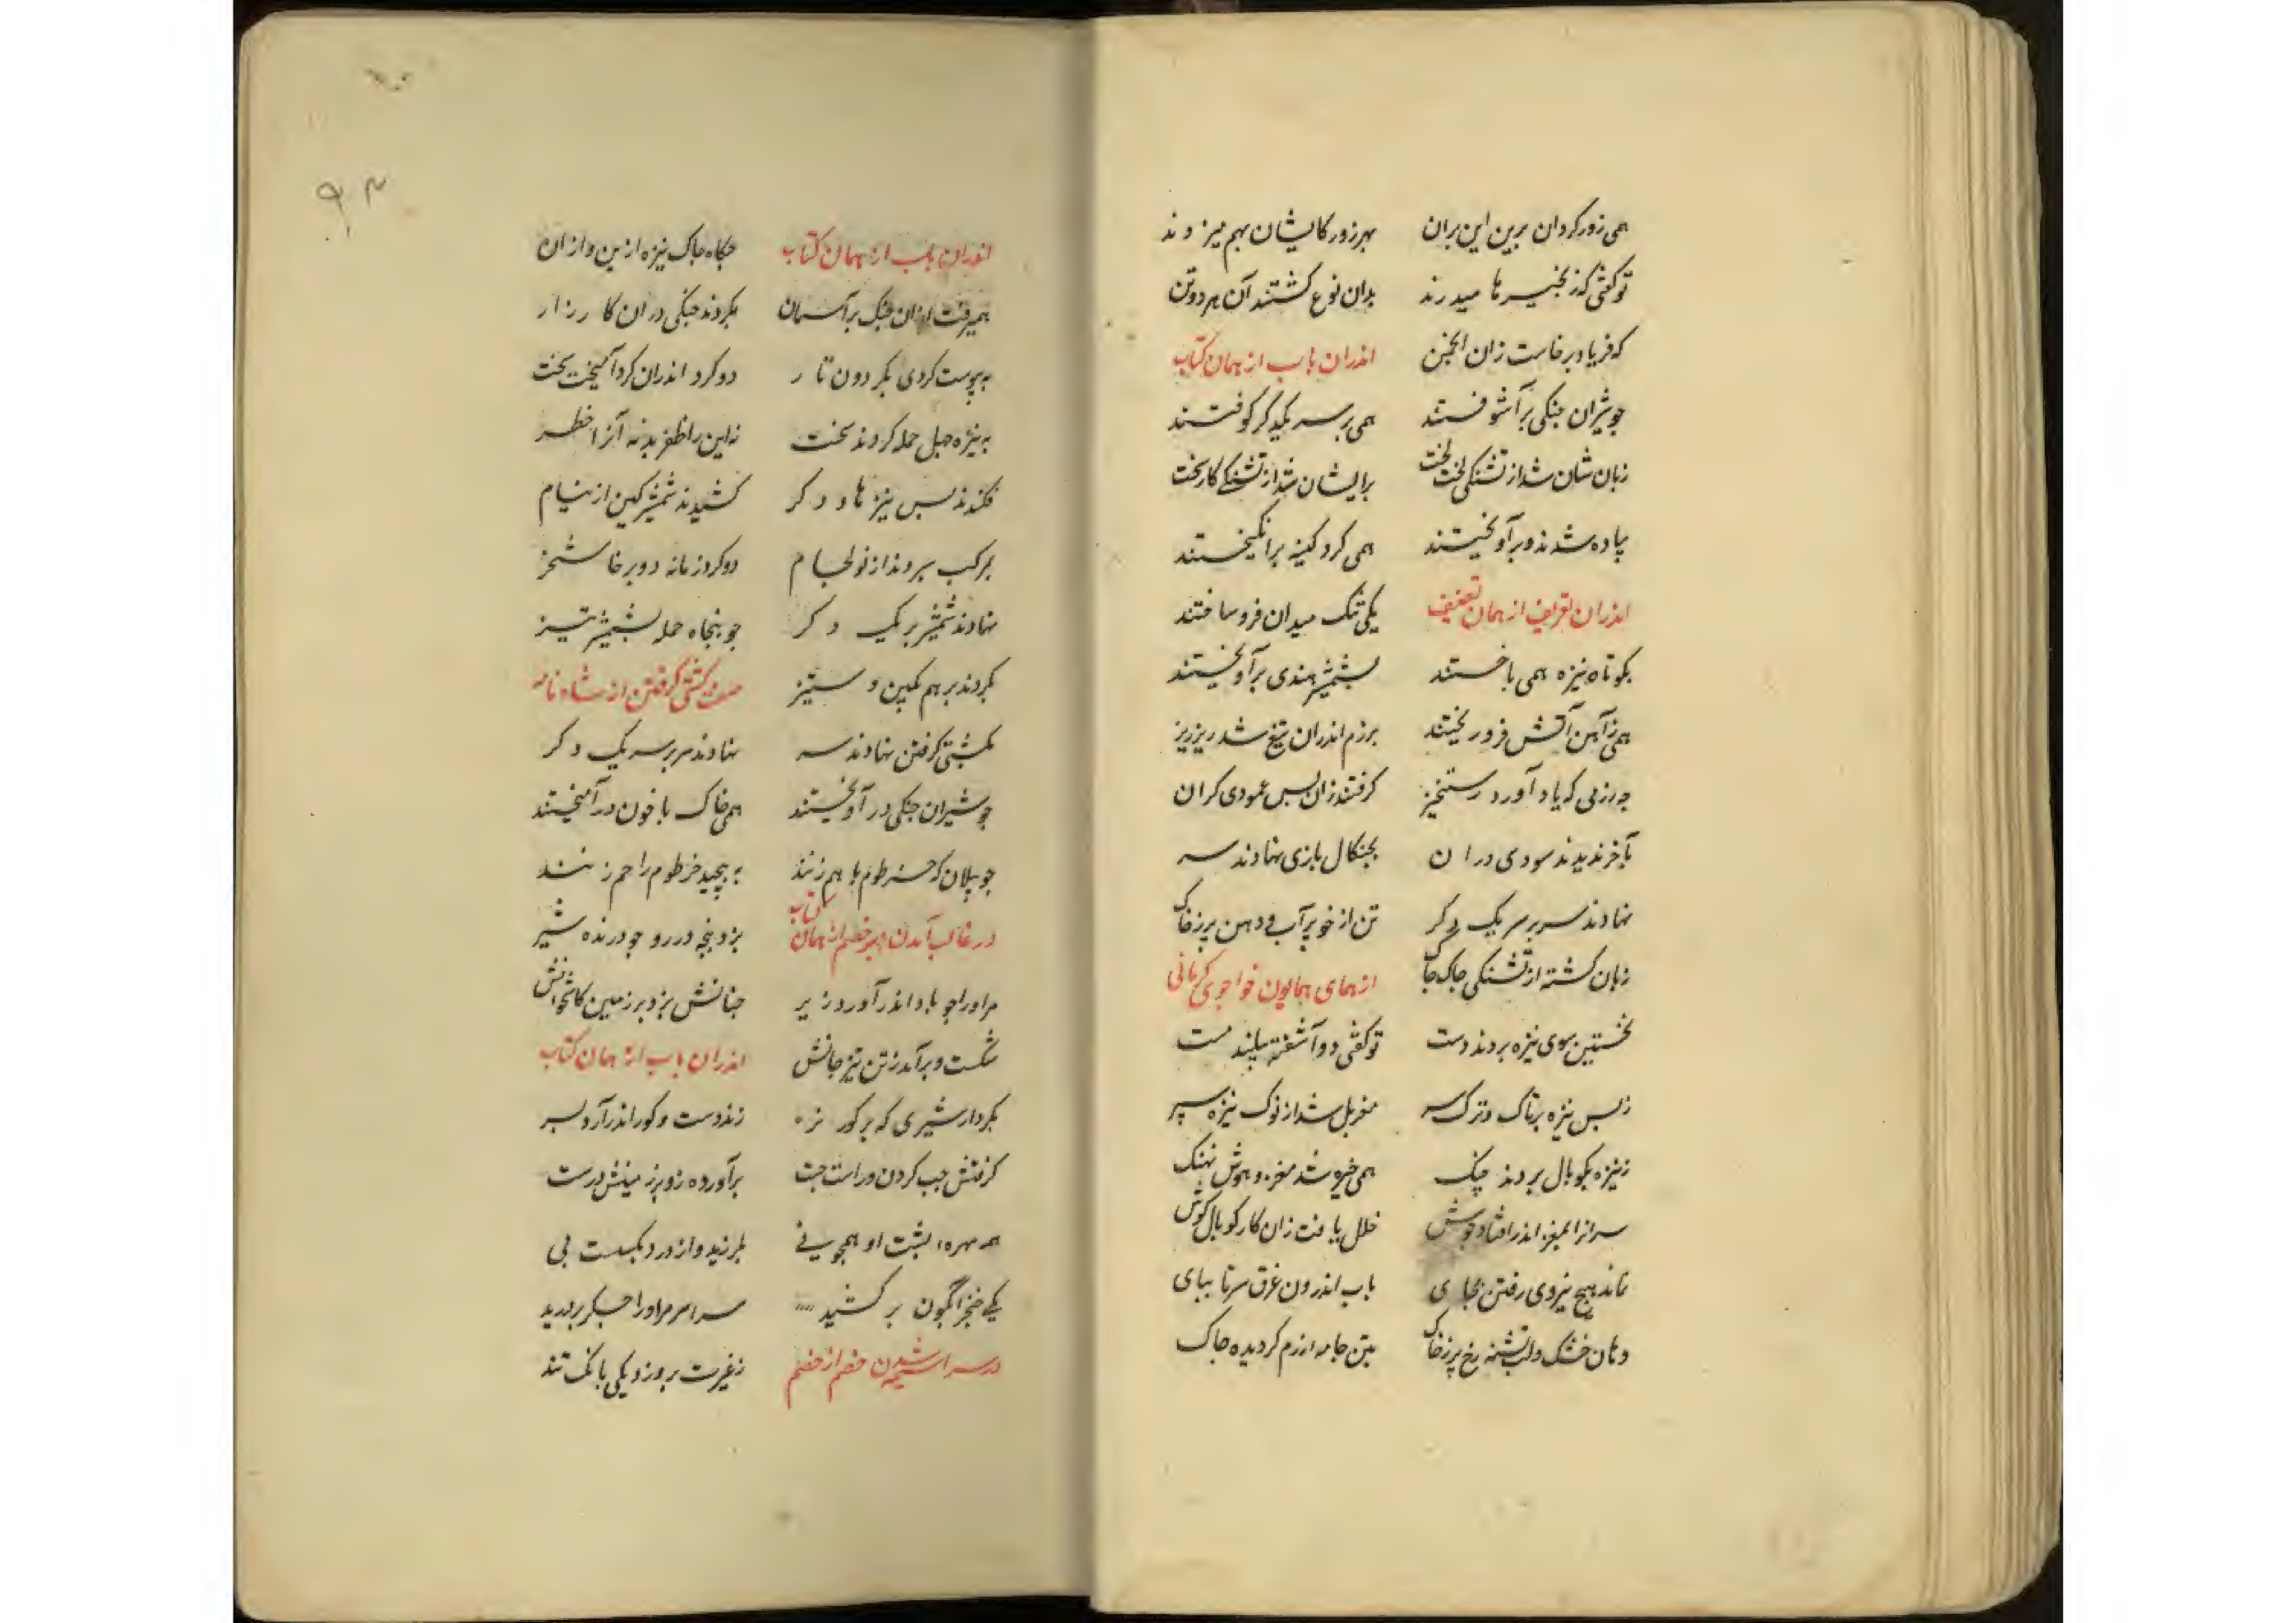 همی زور کرد آن برین این بران بهر زور کایشان بهم میزدند
تو گفتی که زنجیرها میدرند بدان نوع گشتند آن هر دو تن
که فریاد برخاست زان انجمن اندران باب از همان کتاب
چو شیران جنکی برآشوفتند همی بر سر یکدیگر کوفتند
زبان شان شد از تشنکی لخت لخت برایشان شد از تشنکی کار سخت
پیاده شدند و برآویختند همی گرد کینه برانگیختند
اندران تعریف از همان تصنیف یکی تنک میدان فرو ساختند
بکوتاه نیزه همی باختند بشمشیر هندی برآویختند
همی ز آهن آتش فرو ریختند برزم اندران تیغ شد ریز ریز
چه رزمی که یاد آورد رستخیز گرفتند زان پس عمودی گران
بآخر ندیدند سودی دران بچنکال بازی نهادند سر
نهادند سر بر سر یک دگر تن از خوی پر آب و دهن پر ز خاک
زبان گشته از تشنکی چاک چاک از همای همایون خواجوی کرمانی
نخستین سوی نیزه بردند دست تو گفتی دو آشفته پیلند مست
ز بس نیزه بر تاک و ترک سر مغربل شد از نوک نیزه سپر
ز نیزه بکوپال بردند چنک همی خیره شد مغز و هوش نهنک
سرانرا بمغز اندر افتاد جوش خلل یافت زان کار کوپال گوش
نماند هیچ نیروی رفتن بجای باب اندرون غرق سر تا بپای
دهان خشک و لب تشنه رخ پر ز خاک بتن جامه رزم گردیده چاک
۹۳
اندران باب از همان کتاب چکاه چاک نیزه ازین و ازان
همیرفت ازان جنک بر آسمان بکردند جنکی دران کارزار
به پیوست گردی بکردون تار دو گرد اندران گرد آمیخت سخت
به نیزه چهل حمله کردند سخت نه این را ظفر بد نه آنرا خطر
فکندند پس نیزها دگر کشیدند شمشیر کین از نیام
بمرکب سپردند از نو لجام دو گرد زمانه دو برخاشخر
نهادند شمشیر بر یک دگر چو پنجاه حمله بشمشیر تیز
بکردند بر هم بکین و ستیز صفت کشتی گرفتن از شاه نامه
بکشتی گرفتن نهادند سر نهادند سر بر سر یک دگر
چو شیران جنکی درآویختند همی خاک با خون درآمیختند
چو پیلان که خرطوم با هم زنند به پیچید خرطوم را خم زنند
در غالب آمدن بر خصم از همان کتاب بزد پنجه در رو چو درنده شیر
مر او را چو باد اندر آورد زیر چنانش بزد بر زمین کاستخوانش
شکست و برآمد ز تن تیز جانش اندران باب از همان کتاب
بکردار شیری که بر گور نر زند دست و گور اندر آرد بسر
گرفتش چپ گردن و راست جست برآورده زو بر زمینش درست
همه مهره پشت او همچو نی بلرزید و از درد بکسست پی
یکی خنجر آبگون بر کشید سراسر مر او را جکر بردرید
در سراسیمه شدن خصم از خصم ز غیرت برو زد یکی بانک تند